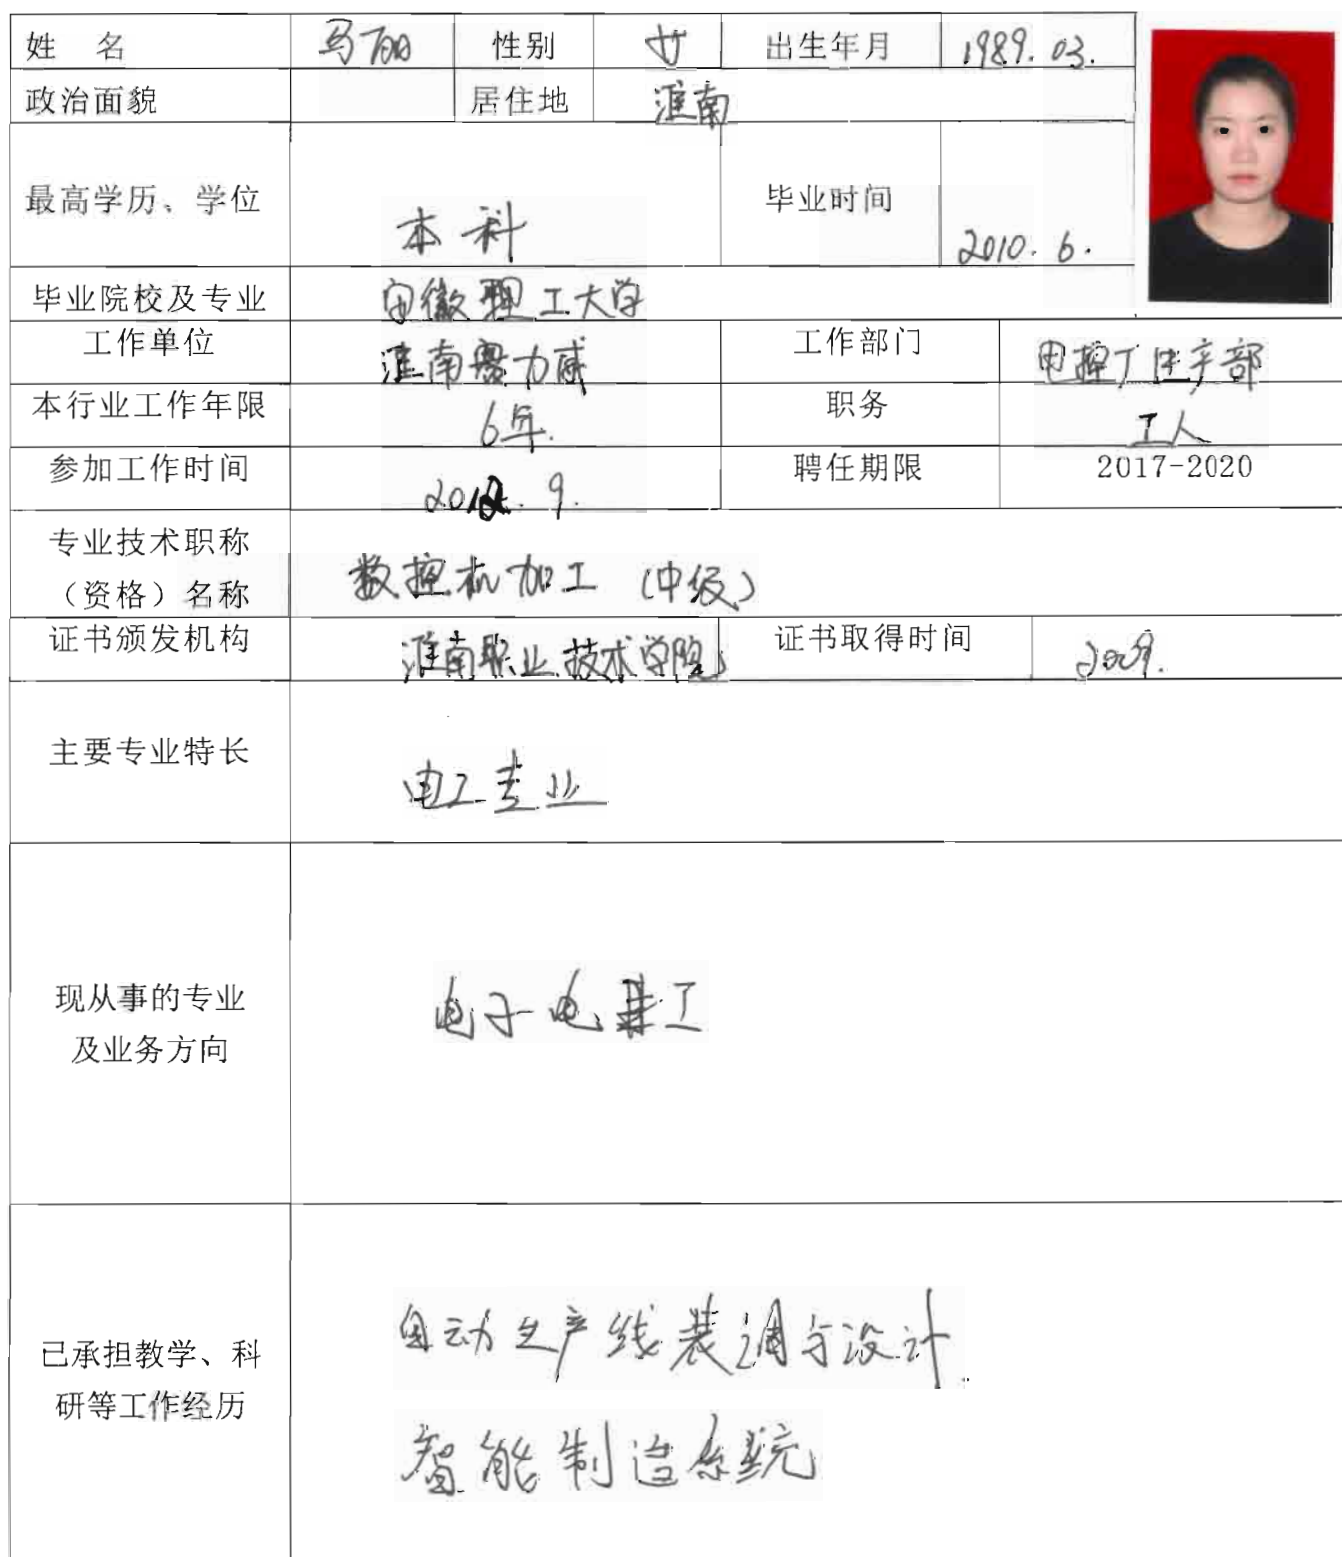 姓 名 马丽 性别 女 出生年月 1989.03.
政治面貌 居住地 淮南
最高学历、学位 本科 毕业时间 2010.6.
毕业院校及专业 安徽理工大学
工作单位 淮南赛力威 工作部门 电控厂生产部
本行业工作年限 6年. 职务 工人
参加工作时间 2012.9. 聘任期限 2017-2020
专业技术职称
（资格）名称 数控机加工（中级）
证书颁发机构 淮南职业技术学院 证书取得时间 2009.
主要专业特长 电工专业
现从事的专业
及业务方向 电子电工
已承担教学、科
研等工作经历
自动生产线装调与设计
智能制造系统